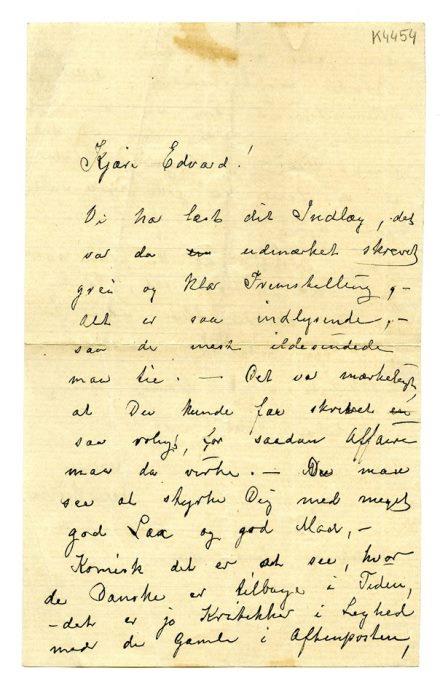 K4454
Kjære Edvard!
Vi har læst dit Indlæg, det
var da udmærket skrevet
grei og klar Fremstilling, -
alt er saa indlysende, -
saa de mest ildesindede
maa tie. - Det var mærkeligt,
at Du kunde faa skrevet
saa roligt, for saadan Affaire
maa da virke. - Du maa
see at styrke Dig med meget
god Lax og god Mad, -
Komisk det er at see, hvor
de Danske er tilbage i Tiden,
- det er jo Kritikker i Leghed
med de Gamle i Aftenposten,